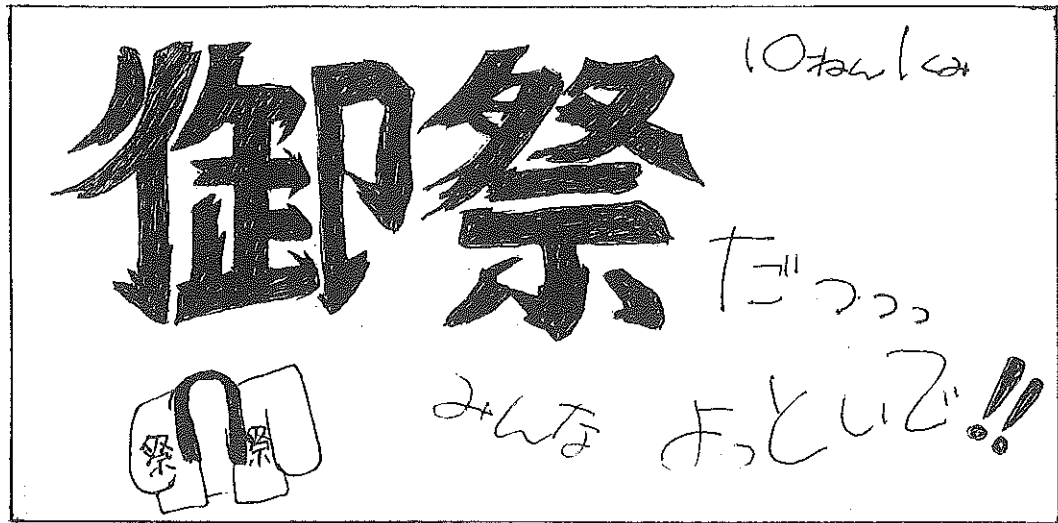 10ねん1くみ
御祭
だっっっ
みんな よっといで!!
祭 祭